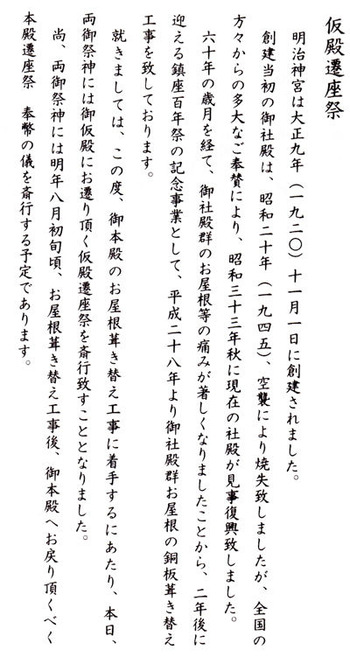 仮殿遷座祭
明治神宮は大正九年（一九二〇）十一月一日に創建されました。
創建当初の御社殿は、昭和二十年（一九四五）、空襲により焼失致しましたが、全国の
方々からの多大なご奉賛により、昭和三十三年秋に現在の社殿が見事復興致しました。
六十年の歳月を経て、御社殿群のお屋根等の痛みが著しくなりましたことから、二年後に
迎える鎮座百年祭の記念事業として、平成二十八年より御社殿群お屋根の銅板葺き替え
工事を致しております。
就きましては、この度、御本殿のお屋根葺き替え工事に着手するにあたり、本日、
両御祭神には御仮殿にお遷り頂く仮殿遷座祭を斎行致すこととなりました。
尚、両御祭神には明年八月初旬頃、お屋根葺き替え工事後、御本殿へお戻り頂くべく
本殿遷座祭　奉幣の儀を斎行する予定であります。